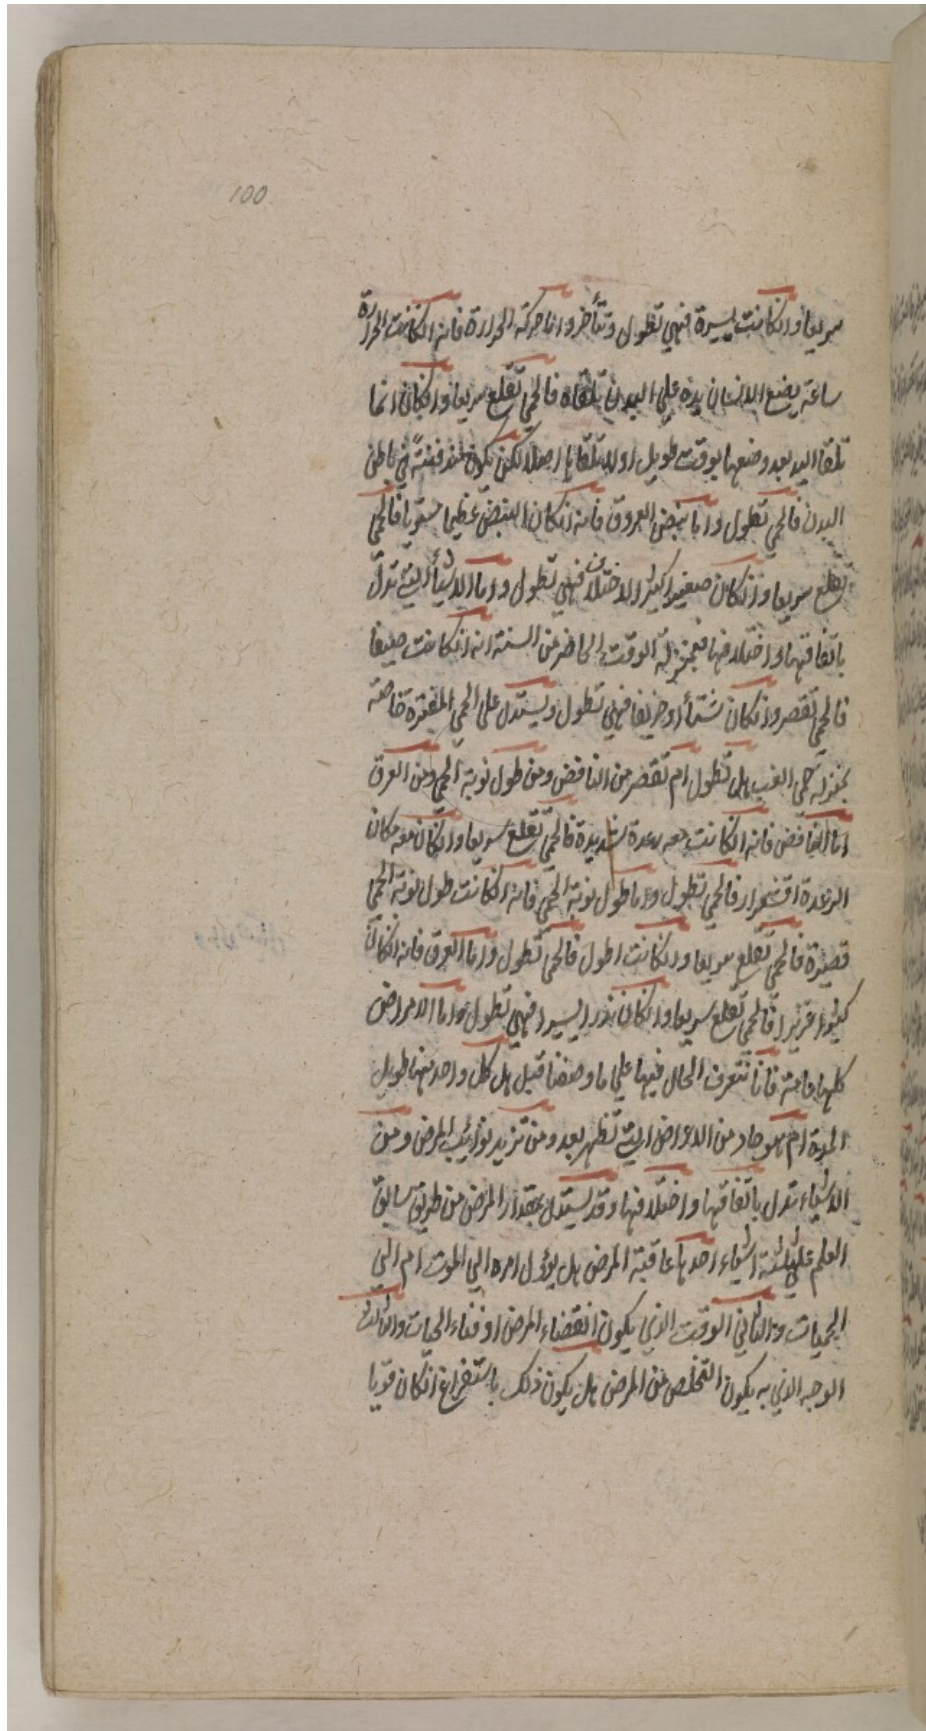 100
سريعا وانكانت يسيرة فهي تطول وتتأخر واما حركة الحرارة فانه انكانت الحرارة
ساعة يضع الانسان يده علي البدن تلقاه فالحمي تقلع سريعا وانكان انما
تلقا اليد بعد وضعها بوقت طويل اولا تلقاها اصلا لكن تكون مندفنة في باطن
البدن فالحمي تطول واما نبض العروق فانه انكان النبض عظيما مستويا فالحمي
تقلع سريعا وانكان صغيرا كثير الاختلاف فهي تطول واما الاشيأ التي تدل
باتفاقها واختلافها فبمنزلة الوقت الحاضر من السنة انه انكانت صيفا
فالحمي تقصر وانكان شتأ او خريفا فهي تطول ويستدل علي الحمي المفترة خاصة
بمنزلة حمي الغب هل تطول ام تقصر من النافض ومن طول نوبة الحمي ومن العرق
اما النافض فانه انكانت معه رعدة شديدة فالحمي تقلع سريعا وانكان معه مكان
الرعدة اقشعرار فالحمي تطول واما طول نوبة الحمي فانه انكانت طول نوبة الحمي
قصيرة فالحمي تقلع سريعا وانكانت اطول فالحمي تطول واما العرق فانه انكان
كثيرا غزيرا فالحمي تقلع سريعا وانكان نذرا يسيرا فهي تطول واما الامراض
كلها عامة فانا نتعرف الحال فيها علي ما وصفنا قبل هل كل واحد منها طويل
المدة ام هو حاد من الاعراض التي تظهر بعد ومن تزيد نوائب المرض ومن
الاشياء تدل باتفاقها واختلافها وقد يستدل بمقدار المرض من طريق سابق
العلم علي ثلثة اشياء احدها عاقبة المرض هل يؤل امره الي الموت ام الي
الحميات والثاني الوقت الذي يكون انقضاء المرض او فناء الحيات والثالث
الوجه الذي به يكون التخلص من المرض هل يكون ذلك باستفراغ انكان قويا